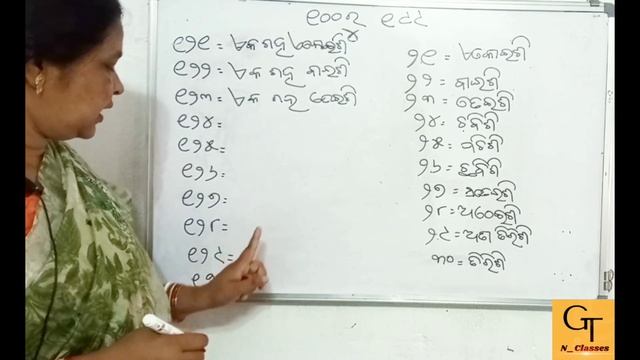 ୧୦୦ରୁ ୧୯୯
୧୨୧ = ଏକ ଶହ ଏକୋଇଶି
୧୨୨ = ଏକ ଶହ ବାଇଶି
୧୨୩ = ଏକ ଶହ ତେଇଶି
୧୨୪ =
୧୨୫ =
୧୨୬ =
୧୨୭ =
୧୨୮ =
୧୨୯ =
୨୧ = ଏକୋଇଶି
୨୨ = ବାଇଶି
୨୩ = ତେଇଶି
୨୪ = ଚବିଶି
୨୫ = ପଚିଶି
୨୬ = ଛବିଶି
୨୭ = ସତେଇଶି
୨୮ = ଅଠେଇଶି
୨୯ = ଅଣତିରିଶି
୩୦ = ତିରିଶି
GT
N_Classes